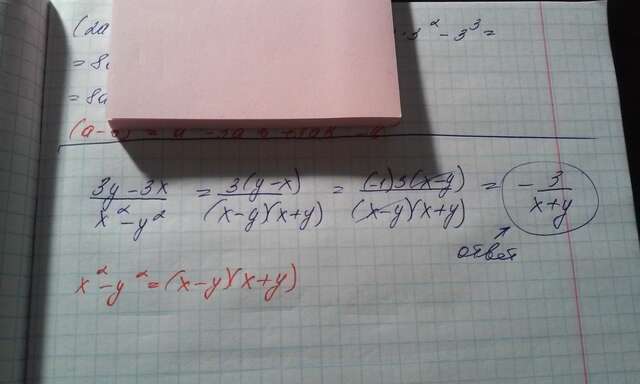 (2a ·3² - 3³ =
= 8
= 8a
(a-
3y - 3x / x² - y² = 3(y - x) / (x - y)(x + y) = (-1)3(x - y) / (x - y)(x + y) = - 3 / x + y
ответ
x² - y² = (x - y)(x + y)